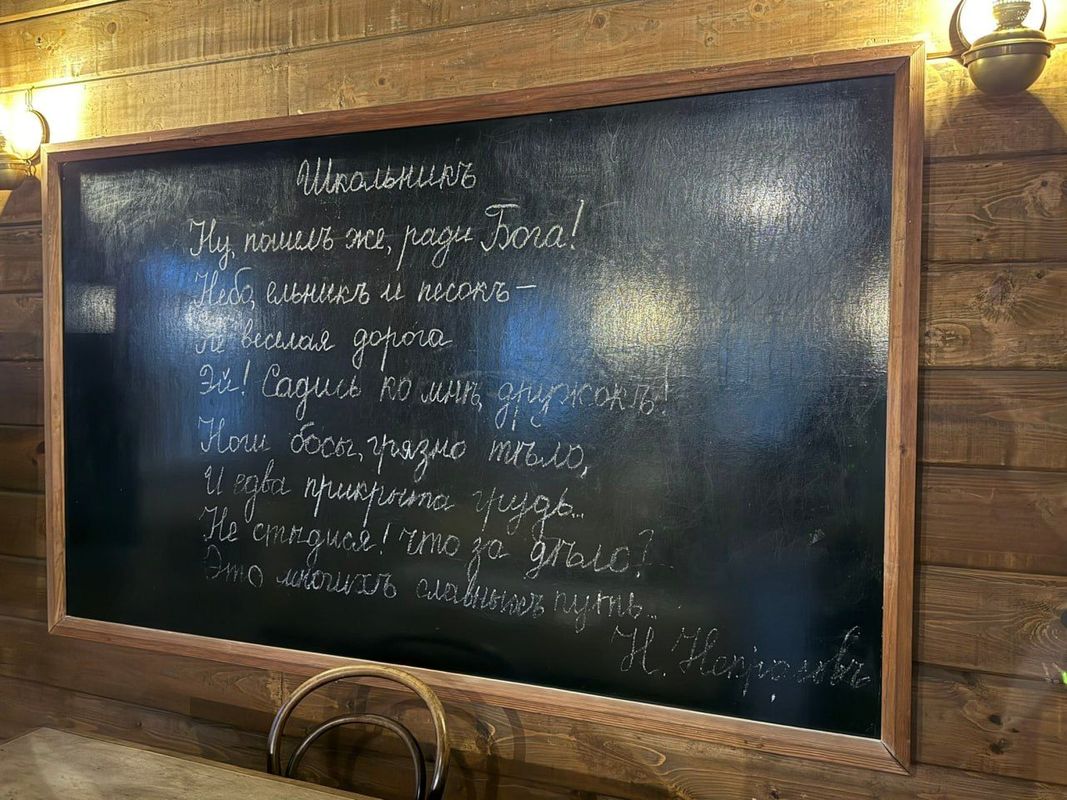 Школьникъ
Ну, пошелъ же, ради Бога!
Небо, ельникъ и песокъ –
Не веселая дорога
Эй! Садись ко мнѣ, дружокъ!
Ноги босы, грязно тѣло,
И едва прикрыта грудь...
Не стыдися! что за дѣло?
Это многихъ славныхъ путь...
Н. Некрасовъ